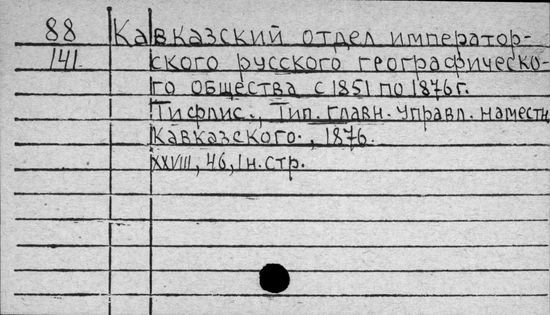 88 Кавказский отдел император-
141. ского русского географическо-
го общества с 1851 по 1876 г.
Тифлис., Тип. главн. управл. наместн.
Кавказского., 1876.
XXVIII, 46, 1 н. стр.